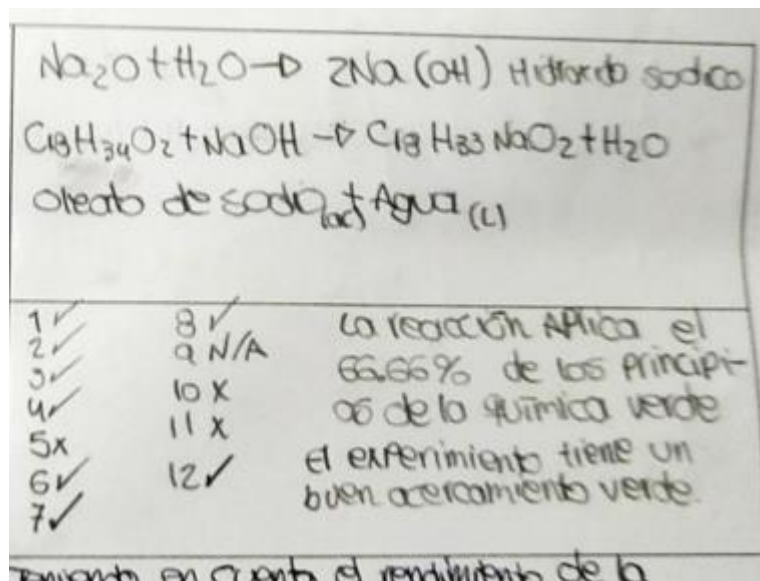 Na₂O + H₂O → 2Na(OH) Hidroxido sodico
C₁₈H₃₄O₂ + NaOH → C₁₈H₃₃NaO₂ + H₂O
Oleato de sodio(ac) + Agua (L)
1 ✓ 8 ✓ La reacción Aplica el
2 ✓ 9 N/A 66.66% de los principi-
3 ✓ 10 x os de la química verde
4 ✓ 11 x
5 x 12 ✓ el experimiento tiene un
6 ✓ buen acercamiento verde.
7 ✓
Teniendo en cuenta el rendimiento de la